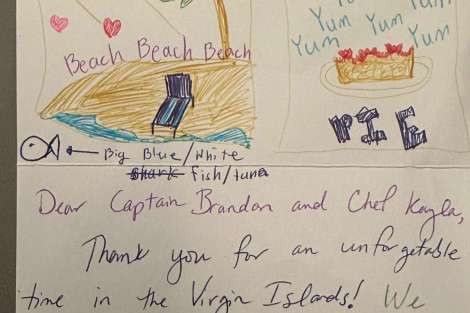 Beach Beach Beach
Yum
Yum
Yum Yum
Yum
PIE
Big Blue/White
shark fish/tuna
Dear Captain Brandon and Chef Kayla,
Thank you for an unforgetable
time in the Virgin Islands! We